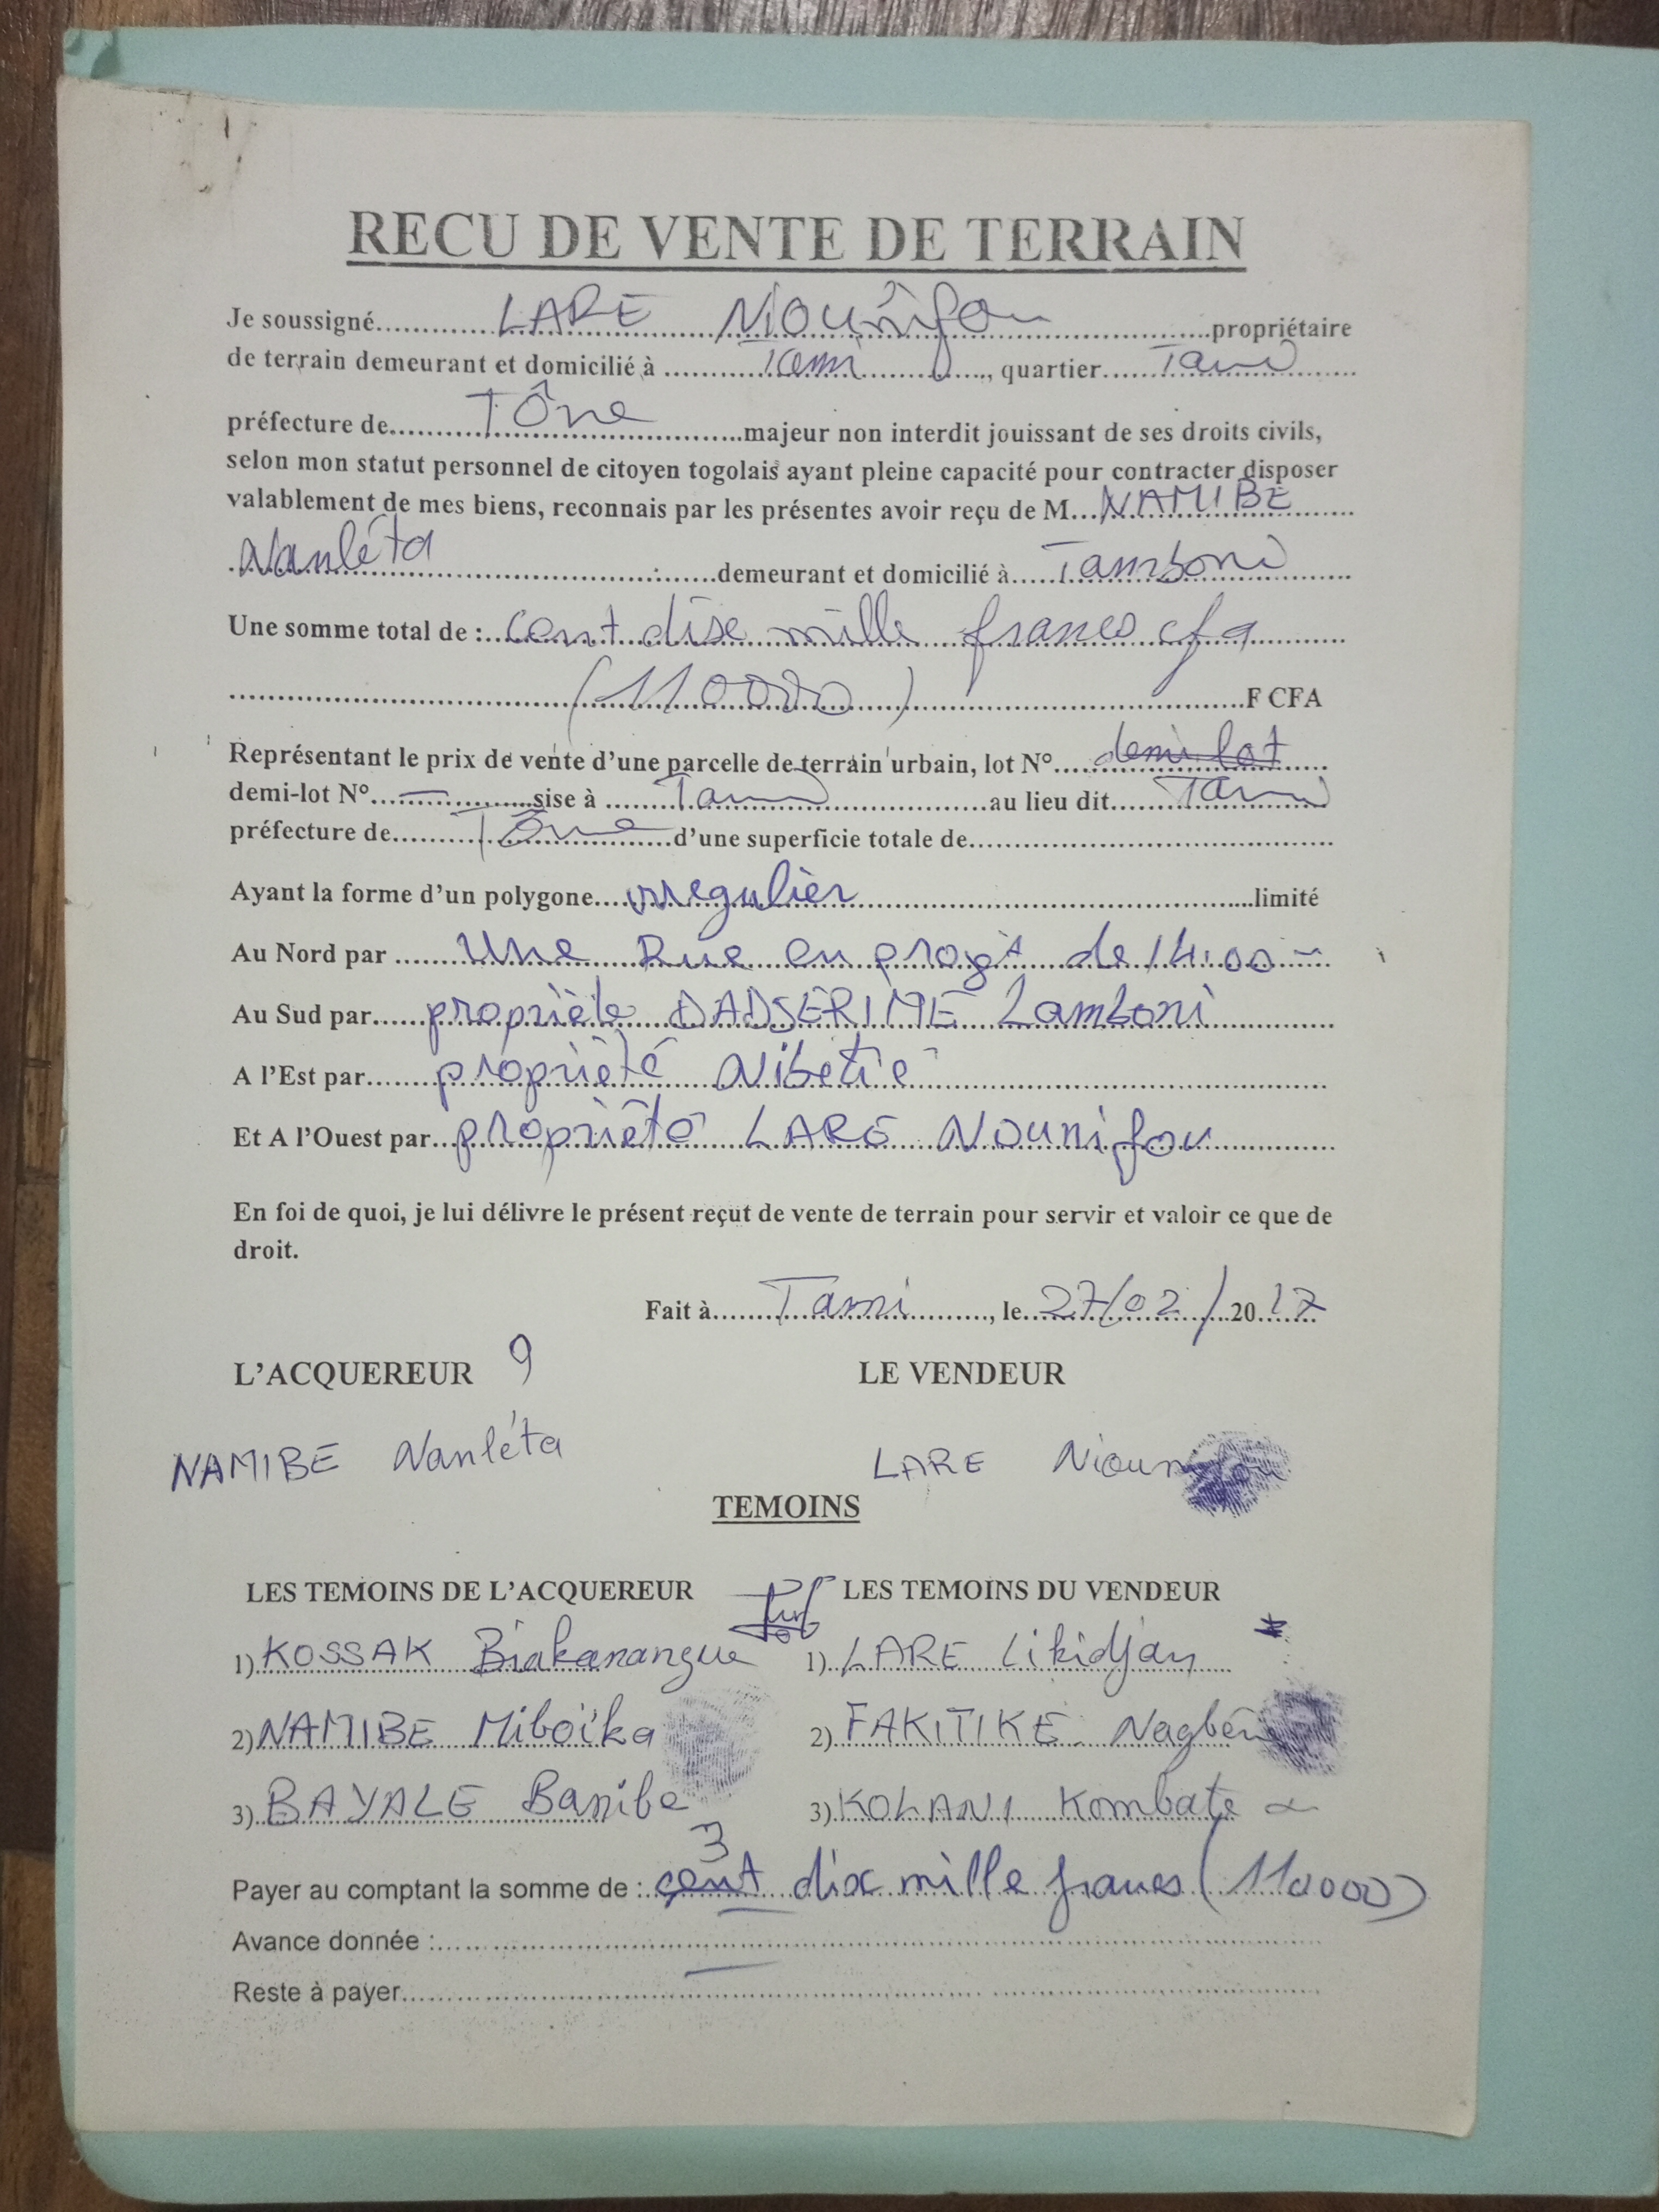 RECU DE VENTE DE TERRAIN
Je soussigné.............LARE Niounifou.................propriétaire
de terrain demeurant et domicilié à ..........Tami.............., quartier......Tami......
préfecture de.........Tône..................majeur non interdit jouissant de ses droits civils,
selon mon statut personnel de citoyen togolais ayant pleine capacité pour contracter disposer
valablement de mes biens, reconnais par les présentes avoir reçu de M...NAMIBE......
.Nanléta..............................:......demeurant et domicilié à.....Tamboni.......
Une somme total de :..cent dise mille francs cfa.........
....................................(110000)....................................F CFA
Représentant le prix de vente d'une parcelle de terrain urbain, lot N°....demi lot.....
demi-lot N°...—..........sise à ........Tami................au lieu dit......Tami
préfecture de.........Tône.........d'une superficie totale de.......................................
Ayant la forme d'un polygone....irregulier.......................................limité
Au Nord par ......Une Rue en projet de 14.00 -
Au Sud par......propriété DADSERIME Lamboni..........
A l'Est par.......propriété Nibétié.......................................
Et A l'Ouest par..propriété LARE Nounifou............
En foi de quoi, je lui délivre le présent reçut de vente de terrain pour servir et valoir ce que de
droit.
Fait à........Tami.........., le..27/02/..20.17
L'ACQUEREUR 9 LE VENDEUR
NAMIBE Nanléta LARE Niounifou
TEMOINS
LES TEMOINS DE L'ACQUEREUR LES TEMOINS DU VENDEUR
1) KOSSAK Biakanangue 1) LARE Likidjan
2) NAMIBE Miboïka 2) FAKITIKE Nagbén
3) BAYALE Banibe 3) KOLANI Kombate
3
Payer au comptant la somme de :..cent dix mille francs (110000)
Avance donnée :.......................................
Reste à payer.......................................